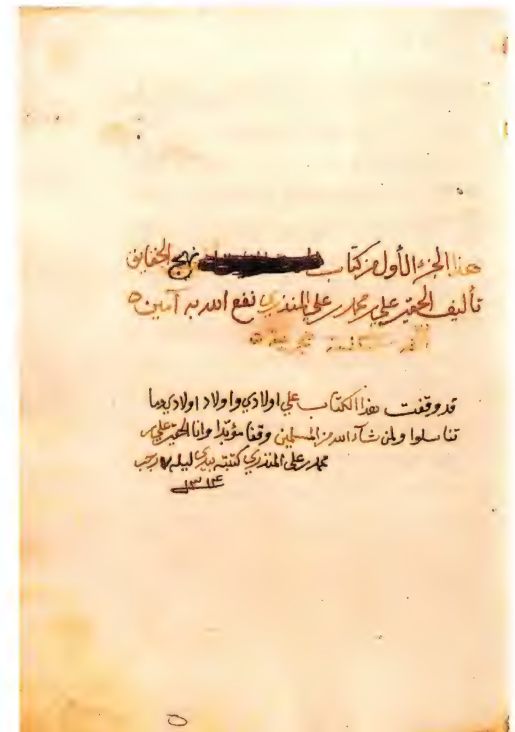 هذا الجزء الأول من كتاب نهج الحقايق
تأليف الحقير علي بن محمد بن علي المنذري نفع الله به آمين ه
قد وقفت هذا الكتاب علي اولادي واولاد اولادي ما
تناسلوا ولمن شآء الله من المسلمين وقفا مؤبدا وانا الحقير علي بن
محمد بن علي المنذري كتبته بيدي ليلة رجب
١٣١٤